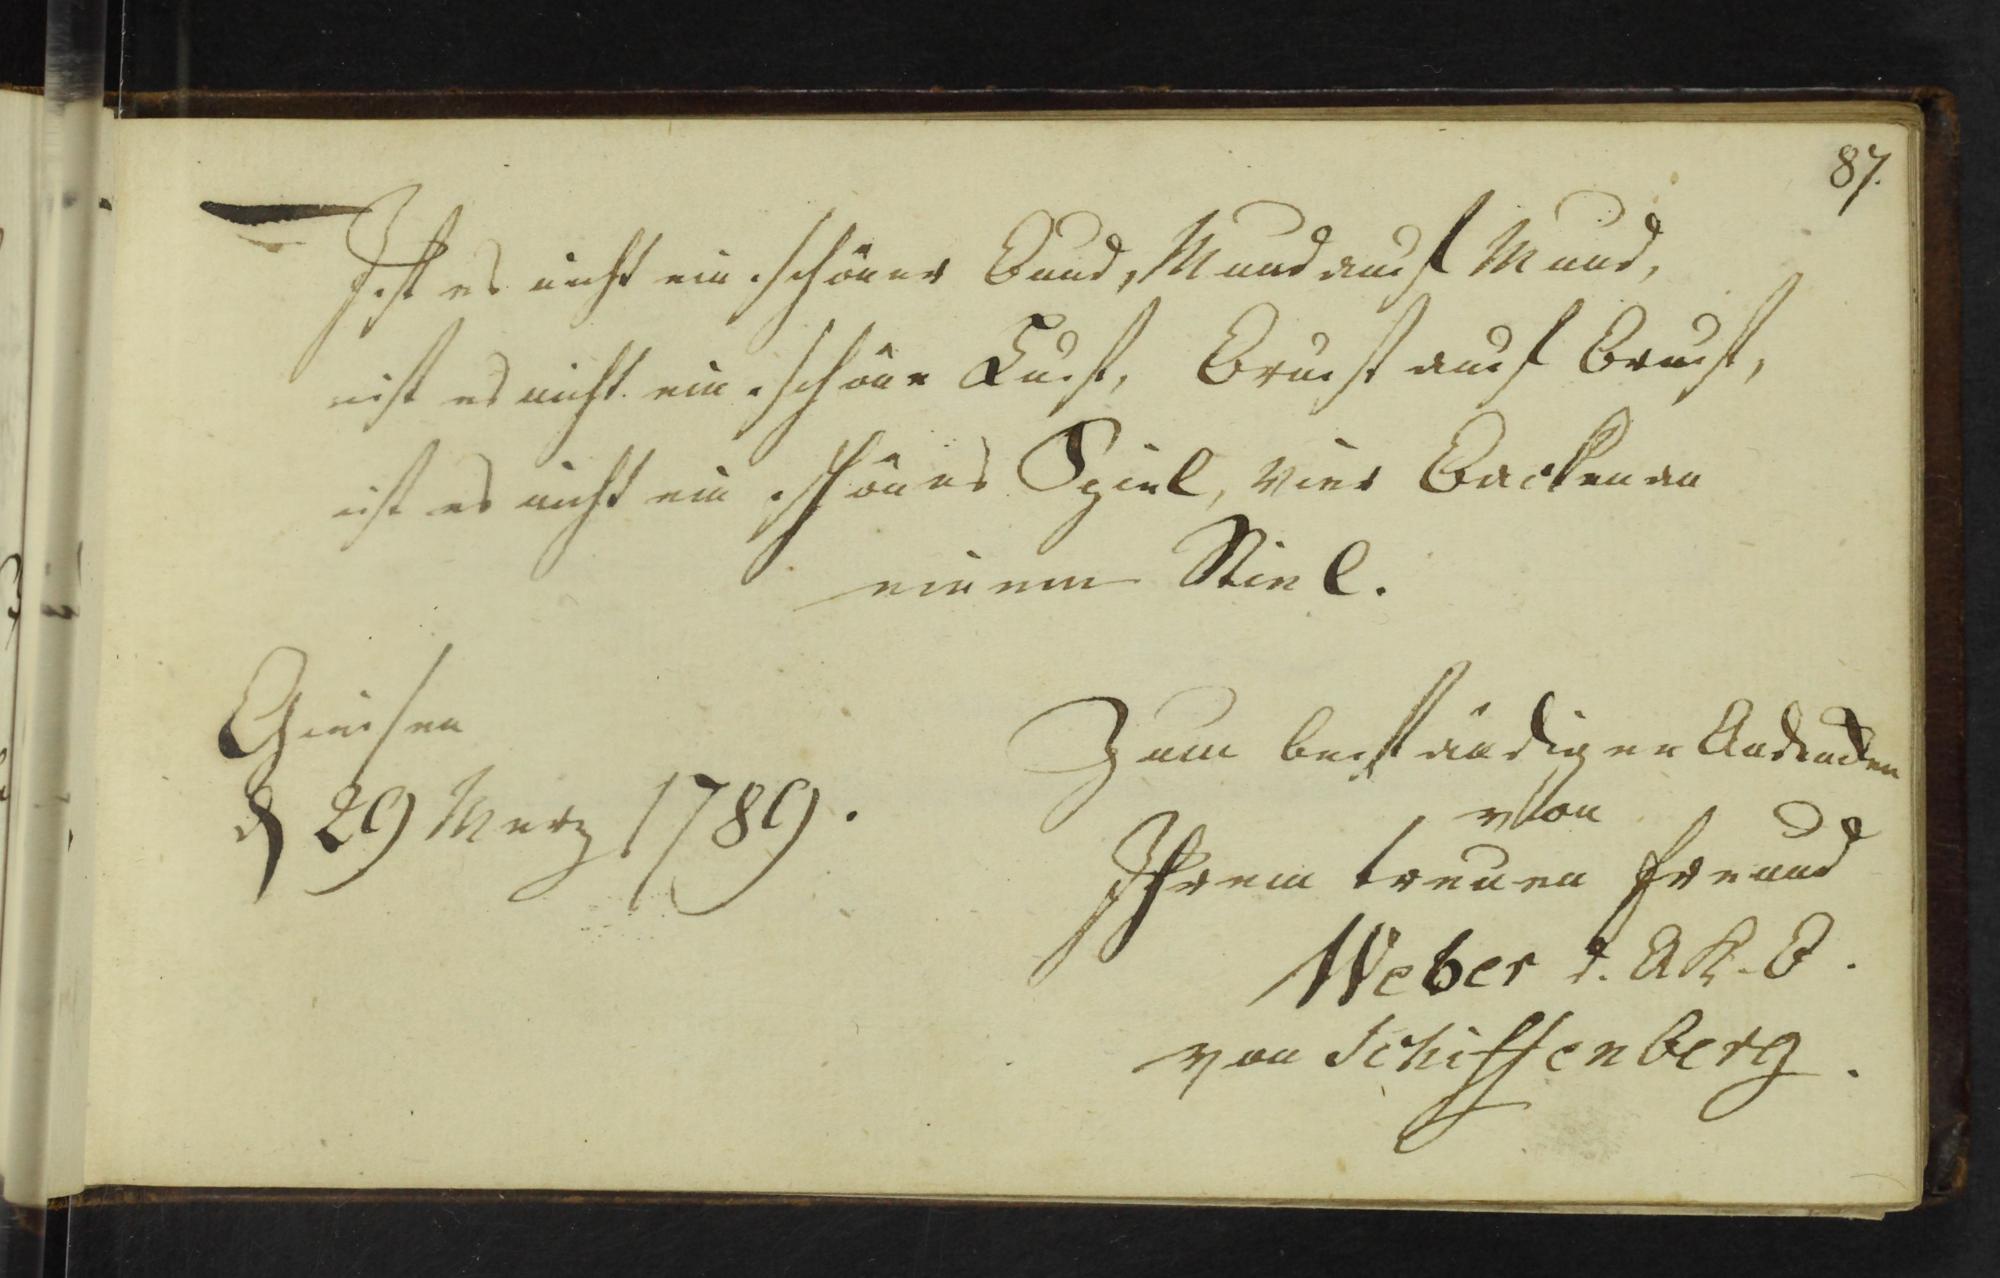 87.
Ist es nicht ein schöner Bund, Mund auf Mund,
ist es nicht ein schöne Lust, Brust auf Brust,
ist es nicht ein schönes Spiel, vier Backen an
einem Stiel.
Giesen
d 29 Merz 1789.
Zum beständigen Andencken
von
Ihrem treuen Freund
Weber d. A K. B.
von Schiffenberg.